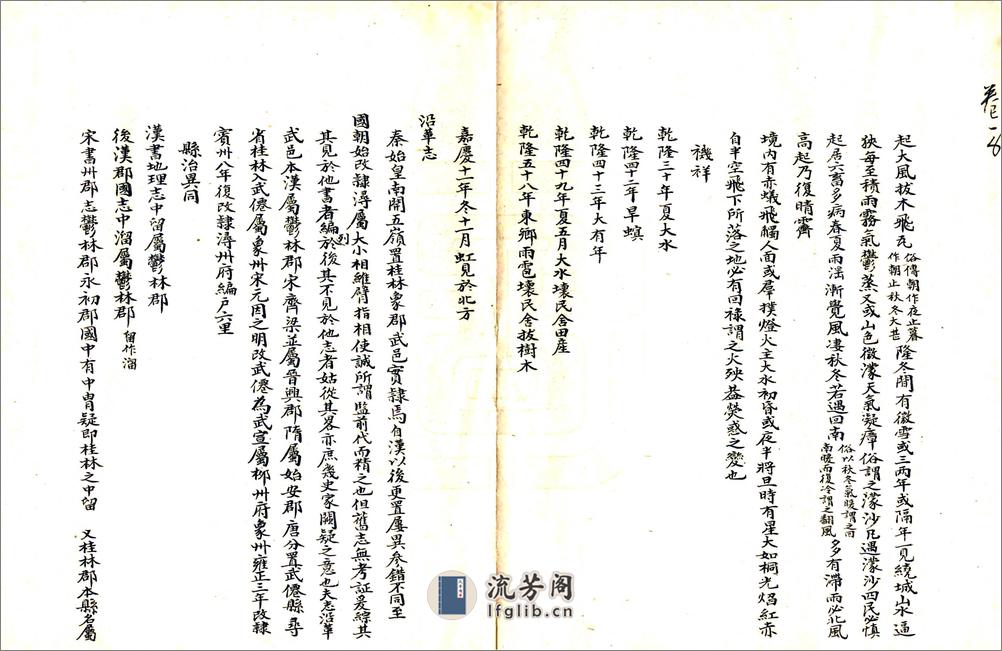 卷一 8
起大風拔木飛瓦俗傳朝作夜止暮作朝止秋冬大甚隆冬間有微雪或三兩年或隔年一見繞城山水逼
狹每至積雨霧氣鬱蒸又或山色微濛天氣凝瘴俗謂之濛沙凡遇濛沙四民必慎
起居六畜多病春夏雨濕漸覺風凄秋冬若遇回南俗以秋冬氣暖謂之回南暖而復冷謂之翻風多有滯雨必北風
高起乃復晴霽
境內有赤蟻飛觸人面或羣撲燈火主大水初昏或夜半將旦時有星大如桐光焰紅赤
自半空飛下所落之地必有回祿謂之火殃蓋熒惑之變也
禨祥
乾隆三十年夏大水
乾隆四十二年旱蝗
乾隆四十三年大有年
乾隆四十九年夏五月大水壞民舍田產
乾隆五十八年東鄉雨雹壞民舍拔樹木
嘉慶十一年冬十一月虹見於北方
沿革志
秦始皇南開五嶺置桂林象郡武邑實隸焉自漢以後更置屢異參錯不同至
國朝始改隸潯屬大小相維臂指相使誠所謂監前代而精之也但舊志無考証爰綜其
其見於他書者編列於後其不見於他志者姑從其畧亦庶幾史家闕疑之意也夫志沿革
武邑本漢屬鬱林郡宋齊梁並屬晉興郡隋屬始安郡唐分置武僊縣尋
省桂林入武僊屬象州宋元因之明改武僊為武宣屬柳州府象州雍正三年改隸
賓州八年復改隸潯州府編戶六里
縣治異同
漢書地理志中留屬鬱林郡
後漢郡國志中溜屬鬱林郡 留作溜
宋書州郡志鬱林郡永初郡國中有中冑疑即桂林之中留 又桂林郡本縣名屬
流芳阁
lfglib.cn